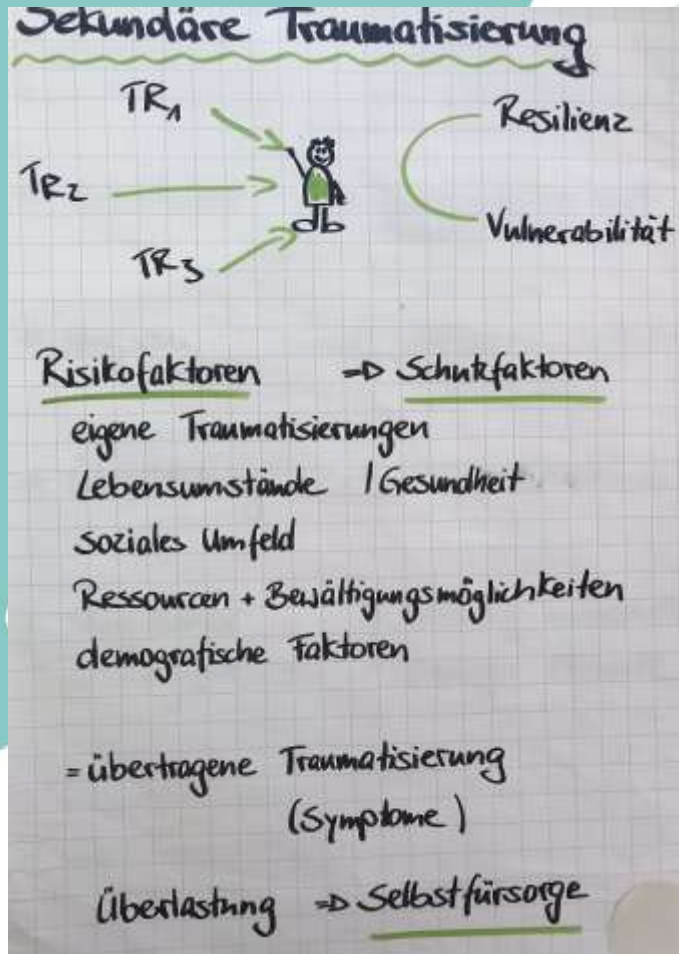 Sekundäre Traumatisierung
TR1
Resilienz
TR2
Vulnerabilität
TR3
Risikofaktoren => Schutzfaktoren
eigene Traumatisierungen
Lebensumstände / Gesundheit
soziales Umfeld
Ressourcen + Bewältigungsmöglichkeiten
demografische Faktoren
= übertragene Traumatisierung
(Symptome)
Überlastung => Selbstfürsorge